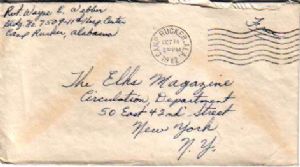 Pvt. Wayne E.
Bldg. No.
Camp Rucker, Alabama
CAMP RUCKER, ALA.
OCT 14
1942
Free
The Elks Magazine
Circulation, Department
50 East 42nd Street
New York
N.Y.